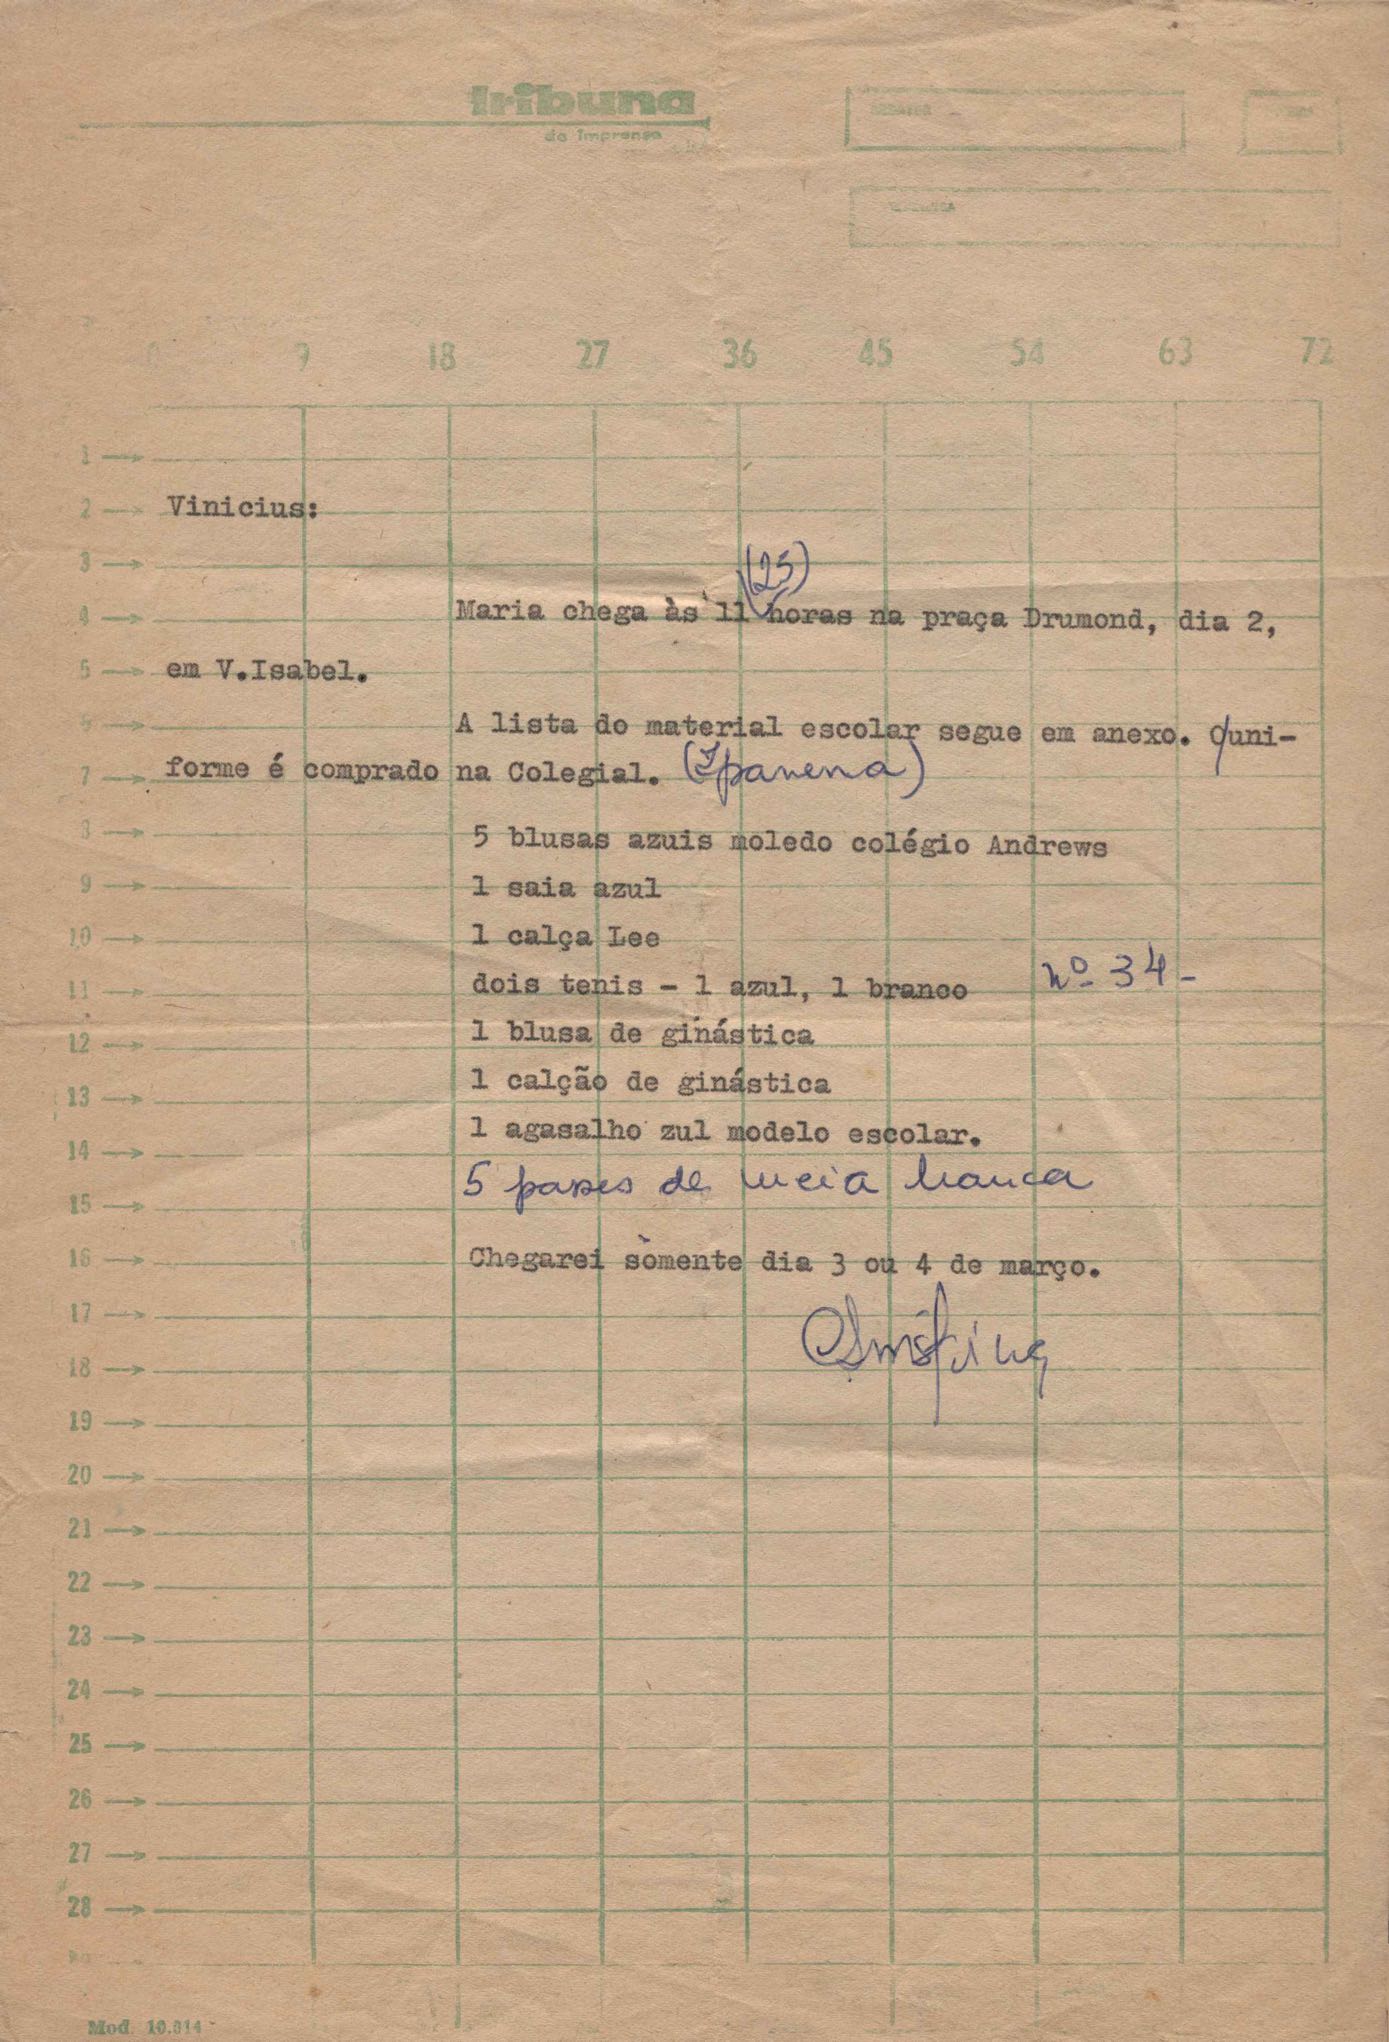 tribuna
da Imprensa
0 9 18 27 36 45 54 63 72
1
2 Vinicius:
3
(23)
4 Maria chega às 11 horas na praça Drumond, dia 2,
5 em V.Isabel.
6 A lista do material escolar segue em anexo. O uni-
7 forme é comprado na Colegial. (Ipanema)
8 5 blusas azuis moledo colégio Andrews
9 1 saia azul
10 1 calça Lee
11 dois tenis - 1 azul, 1 branco nº 34-
12 1 blusa de ginástica
13 1 calção de ginástica
14 1 agasalho zul modelo escolar.
15 5 pares de meia branca
16 Chegarei sòmente dia 3 ou 4 de março.
17
18
19
20
21
22
23
24
25
26
27
28
Mod. 10.014